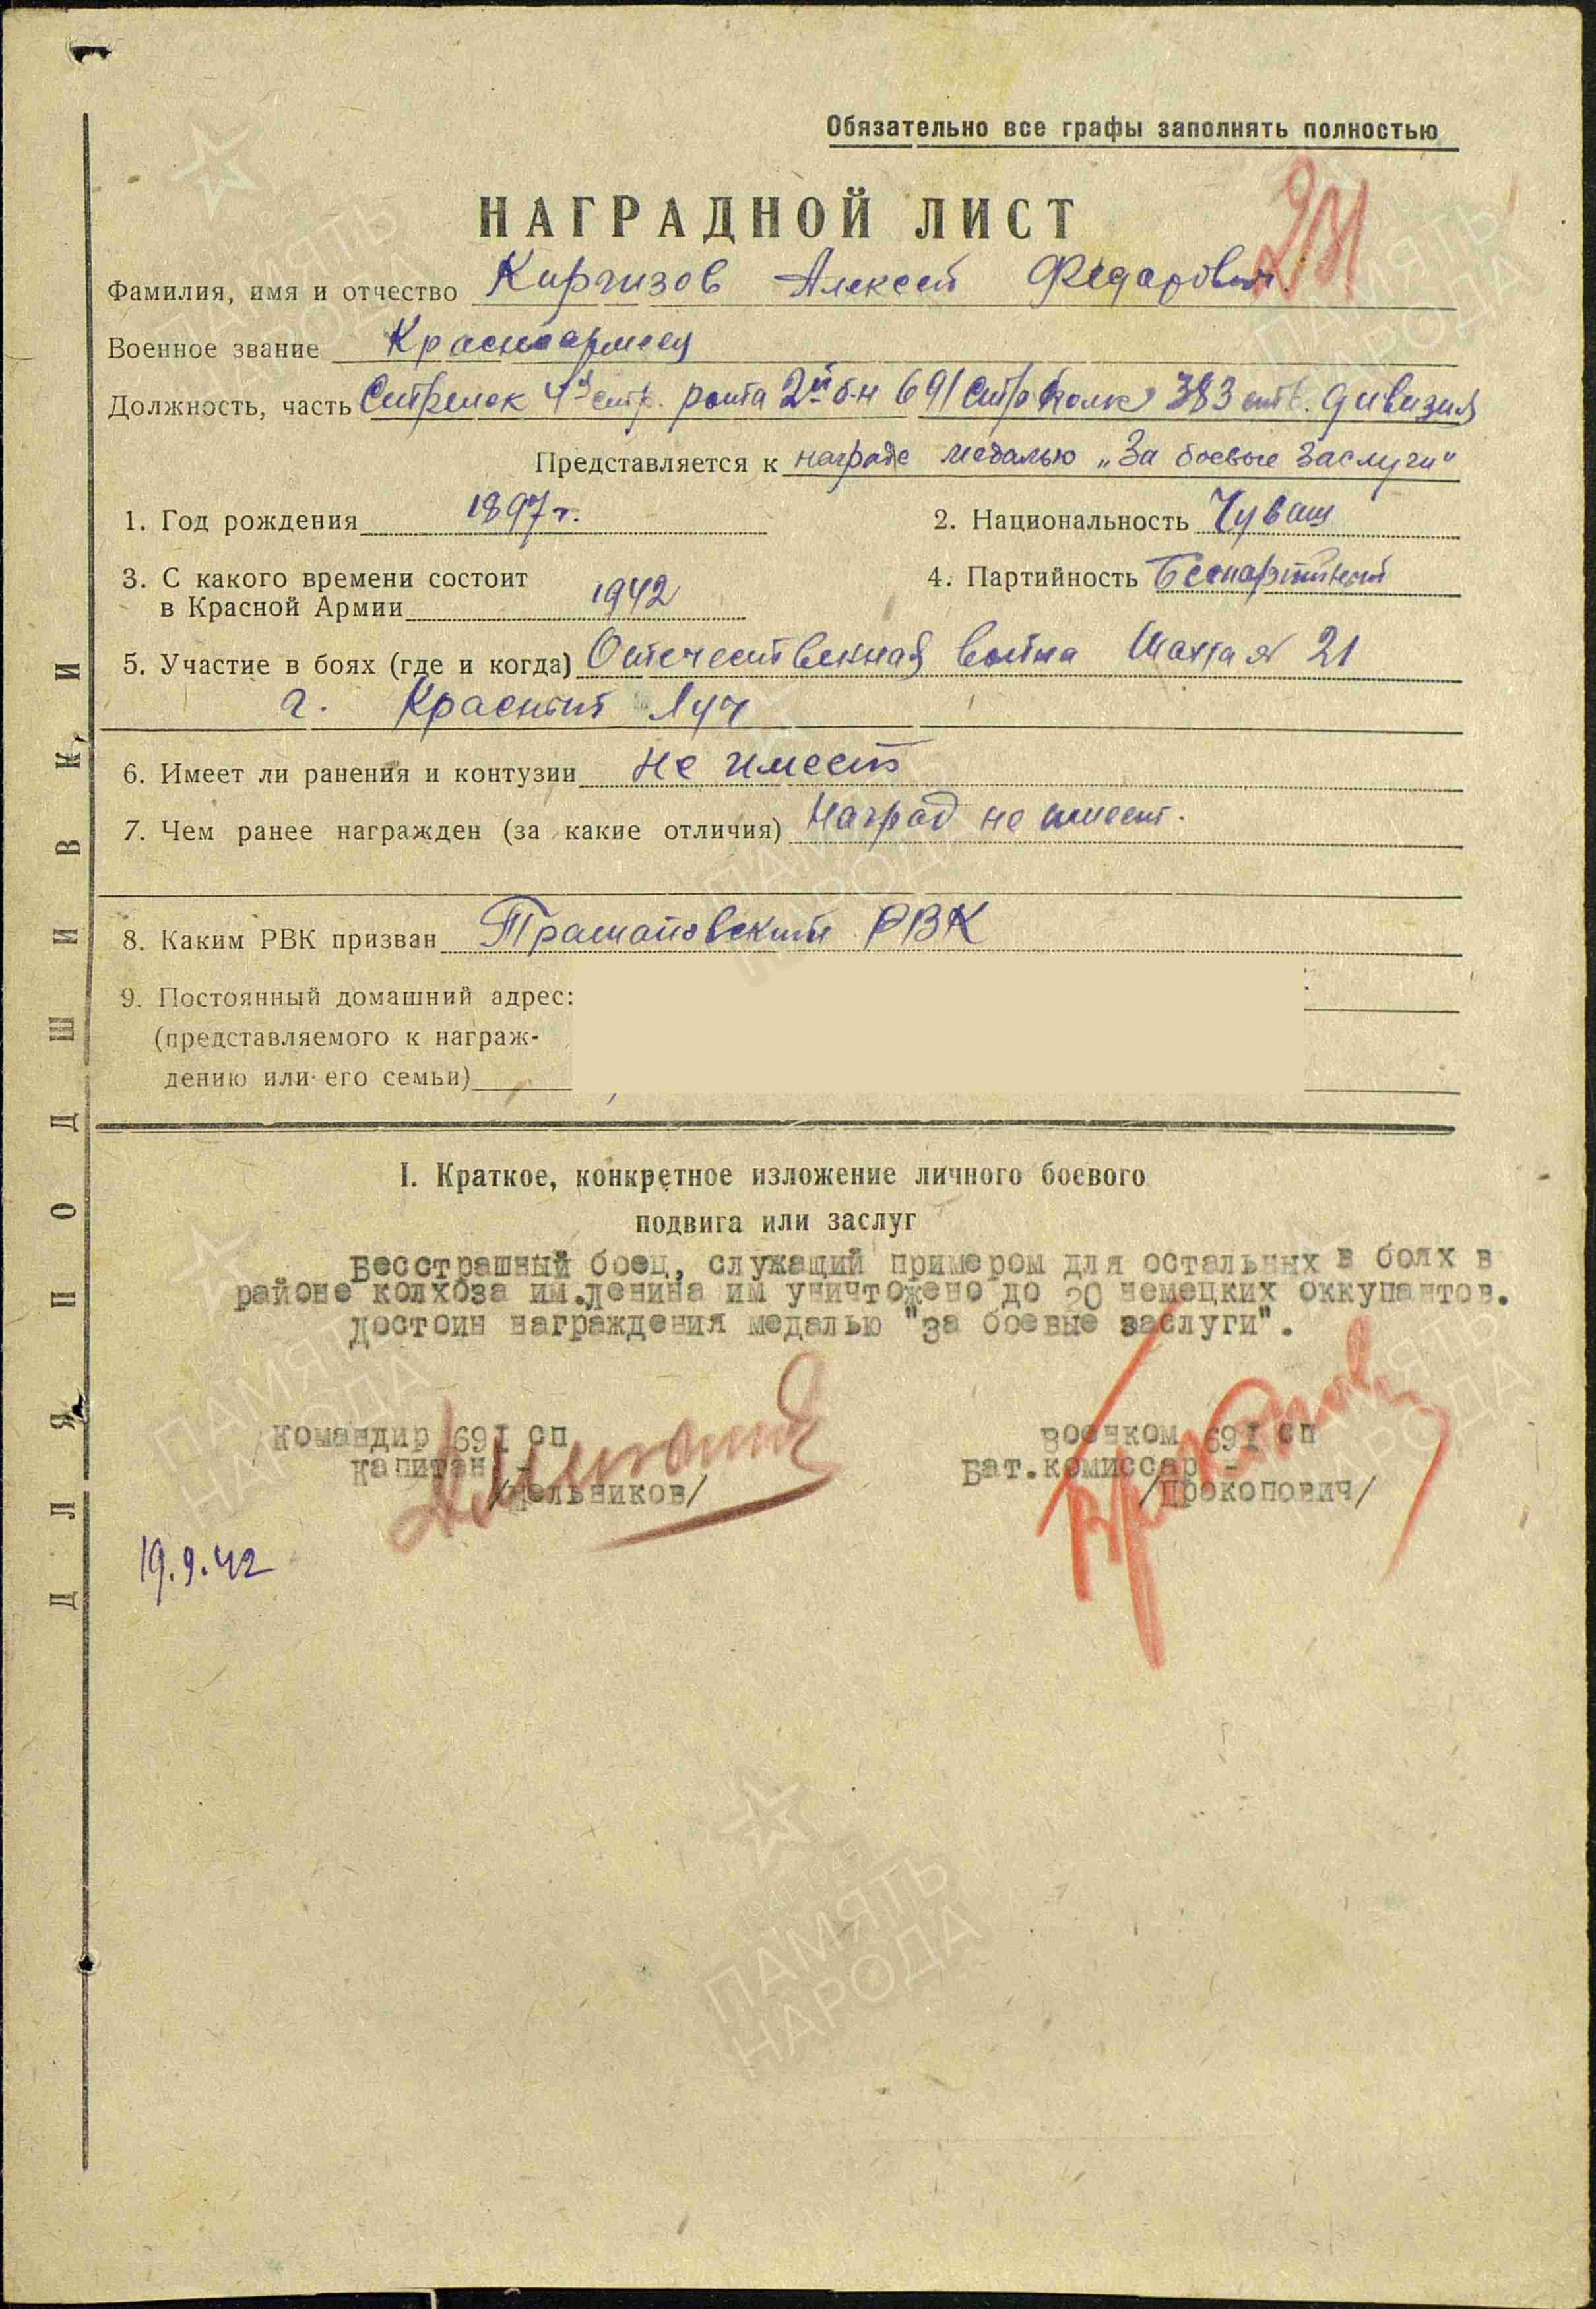 Обязательно все графы заполнять полностью
НАГРАДНОЙ ЛИСТ
Фамилия, имя и отчество Киргизов Алексей Федарович.
Военное звание Красноармеец
Должность, часть Стрелок 4й стр. рота 2й б-н 691 стр полк 383 стр. дивизия
Представляется к награде медалью „За боевые заслуги"
1. Год рождения 1897 г.
2. Национальность Чуваш
3. С какого времени состоит
в Красной Армии 1942
4. Партийность Беспартийный
5. Участие в боях (где и когда) Отечественная война Шахта № 21
г. Красный Луч
6. Имеет ли ранения и контузии не имеет
7. Чем ранее награжден (за какие отличия) Наград не имеет.
8. Каким РВК призван РВК
9. Постоянный домашний адрес:
(представляемого к награж-
дению или его семьи)
I. Краткое, конкретное изложение личного боевого
подвига или заслуг
Бесстрашный боец, служащий примером для остальных в боях в
районе колхоза им.Ленина им уничтожено до 20 немецких оккупантов.
Достоин награждения медалью "За боевые заслуги".
Командир 691 сп
Капитан -
/Мельников/
Военком 691 сп
Бат.комиссар -
/Прокопович/
19.9.42
ДЛЯ ПОДШИВКИ
ПАМЯТЬ
НАРОДА